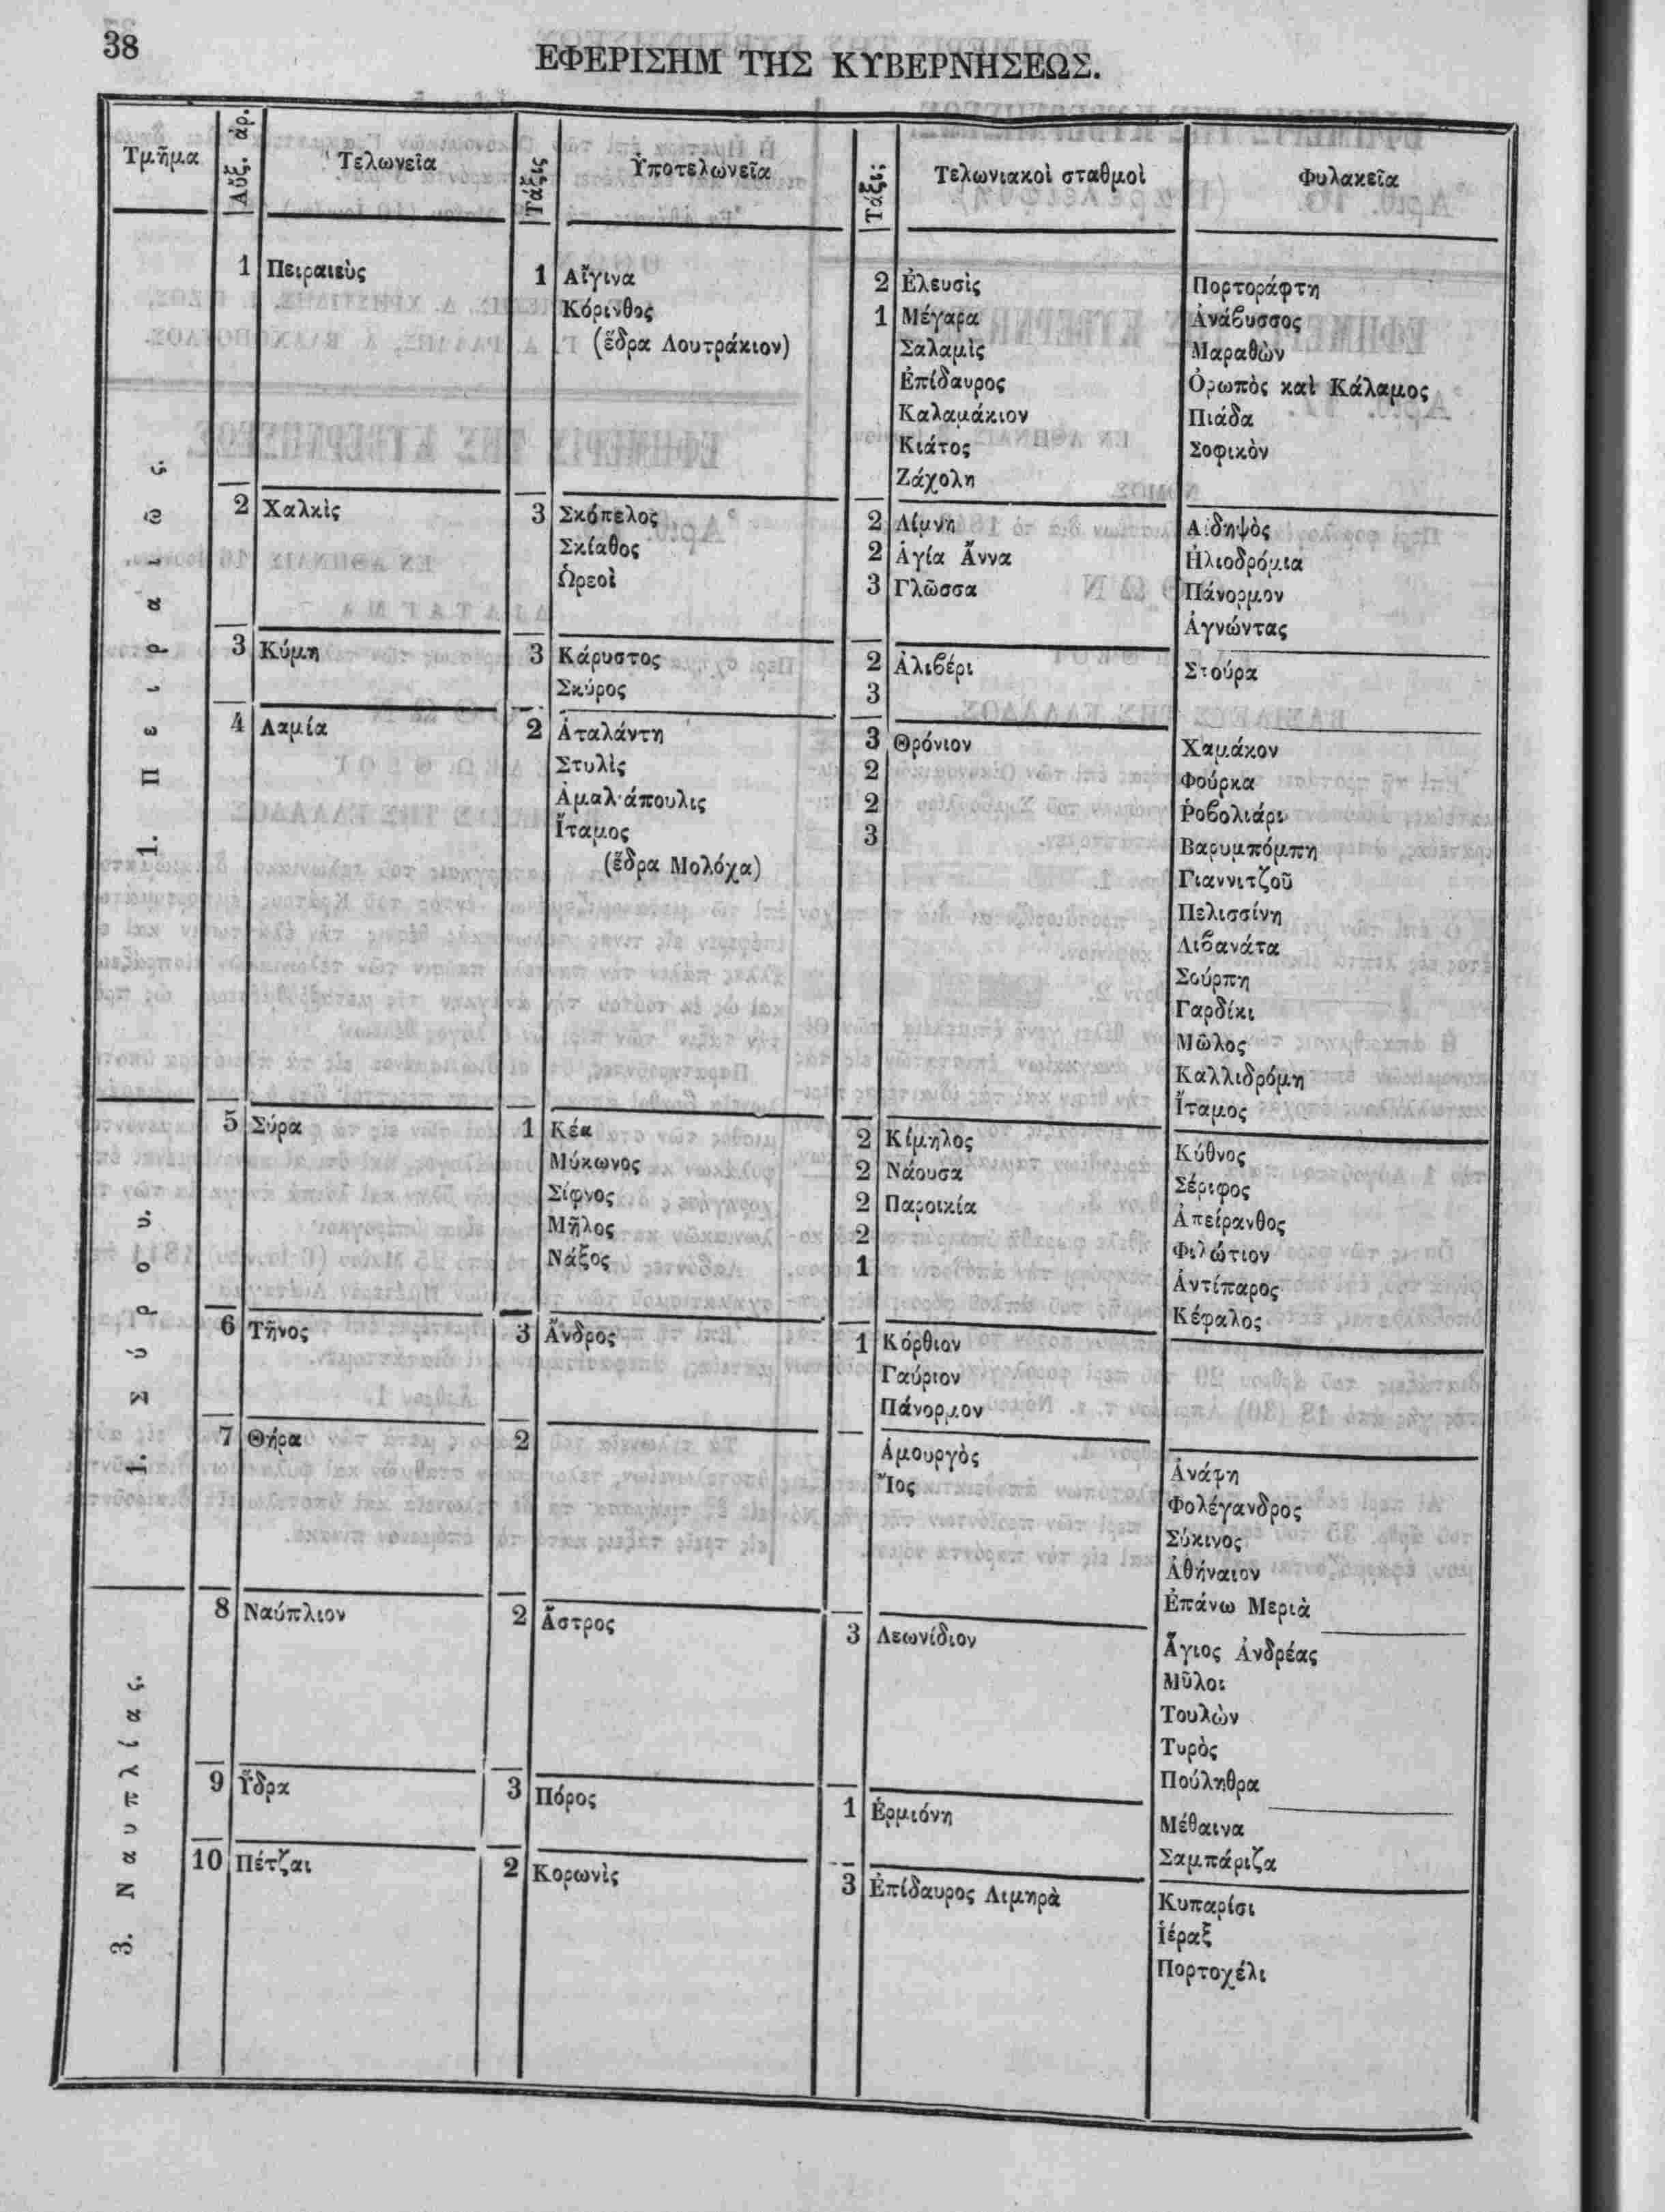 38
ΕΦΕΡΙΣΗΜ ΤΗΣ ΚΥΒΕΡΝΗΣΕΩΣ.
Τμῆμα Αὔξ. ἀρ. Τελωνεῖα Τάξις Ὑποτελωνεῖα Τάξις Τελωνιακοὶ σταθμοὶ Φυλακεῖα
1. Πειραιῶς.
1 Πειραιεὺς 1 Αἴγινα 2 Ἐλευσὶς Πορτοράφτη
Κόρινθος 1 Μέγαρα Ἀνάβυσσος
(ἕδρα Λουτράκιον) Σαλαμὶς Μαραθὼν
Ἐπίδαυρος Ὀρωπὸς καὶ Κάλαμος
Καλαμάκιον Πιάδα
Κιάτος Σοφικὸν
Ζάχολη
2 Χαλκὶς 3 Σκόπελος 2 Λίμνη Αἰδηψὸς
Σκίαθος 2 Ἁγία Ἄννα Ἡλιοδρόμια
Ὠρεοὶ 3 Γλῶσσα Πάνορμον
Ἀγνώντας
3 Κύμη 3 Κάρυστος 2 Ἀλιβέρι Στούρα
Σκύρος 3
4 Λαμία 2 Ἀταλάντη 3 Θρόνιον Χαμάκον
Στυλὶς 2 Φούρκα
Ἀμαλιάπουλις 2 Ῥοβολιάρι
Ἴταμος 3 Βαρυμπόμπη
(ἕδρα Μολόχα) Γιαννιτζοῦ
Πελισσίνη
Λιβανάτα
Σούρπη
Γαρδίκι
Μῶλος
Καλλιδρόμη
Ἴταμος
1. Σύρου.
5 Σύρα 1 Κέα 2 Κίμηλος Κύθνος
Μύκωνος 2 Νάουσα Σέριφος
Σίφνος 2 Παροικία Ἀπείρανθος
Μῆλος 2 Φιλώτιον
Νάξος 1 Ἀντίπαρος
Κέφαλος
6 Τῆνος 3 Ἄνδρος 1 Κόρθιον
Γαύριον
Πάνορμον
7 Θήρα 2 Ἀμουργὸς Ἀνάφη
Ἴος Φολέγανδρος
Σύκινος
Ἀθήναιον
Ἐπάνω Μεριὰ
3. Ναυπλίας.
8 Ναύπλιον 2 Ἄστρος 3 Λεωνίδιον Ἅγιος Ἀνδρέας
Μῦλοι
Τουλὼν
Τυρὸς
Πούληθρα
9 Ὕδρα 3 Πόρος 1 Ἑρμιόνη Μέθαινα
Σαμπάριζα
10 Πέτζαι 2 Κορωνὶς 3 Ἐπίδαυρος Λιμηρὰ Κυπαρίσι
Ἱέραξ
Πορτοχέλι